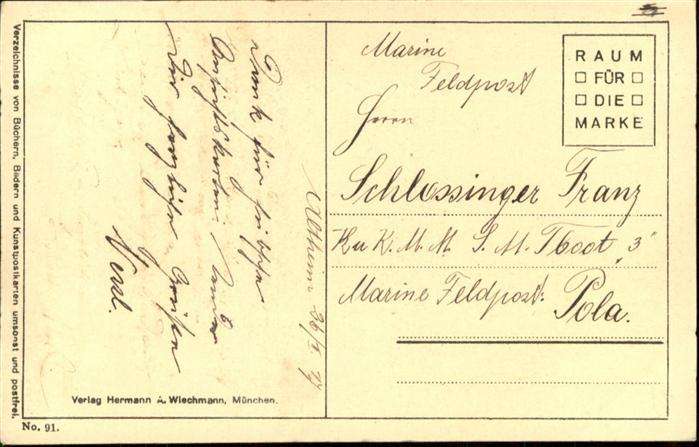 Verzeichnisse von Büchern, Bildern und Kunstpostkarten umsonst und postfrei.
Dank für
Ansichtskarten
Altheim 26/
Verlag Hermann A. Wiechmann, München.
No. 91.
Marine
Feldpost
Herrn
RAUM
FÜR
DIE
MARKE
Schlossinger Franz
K u K. M. M. S. M. Tboot „3"
Marine Feldpost. Pola.